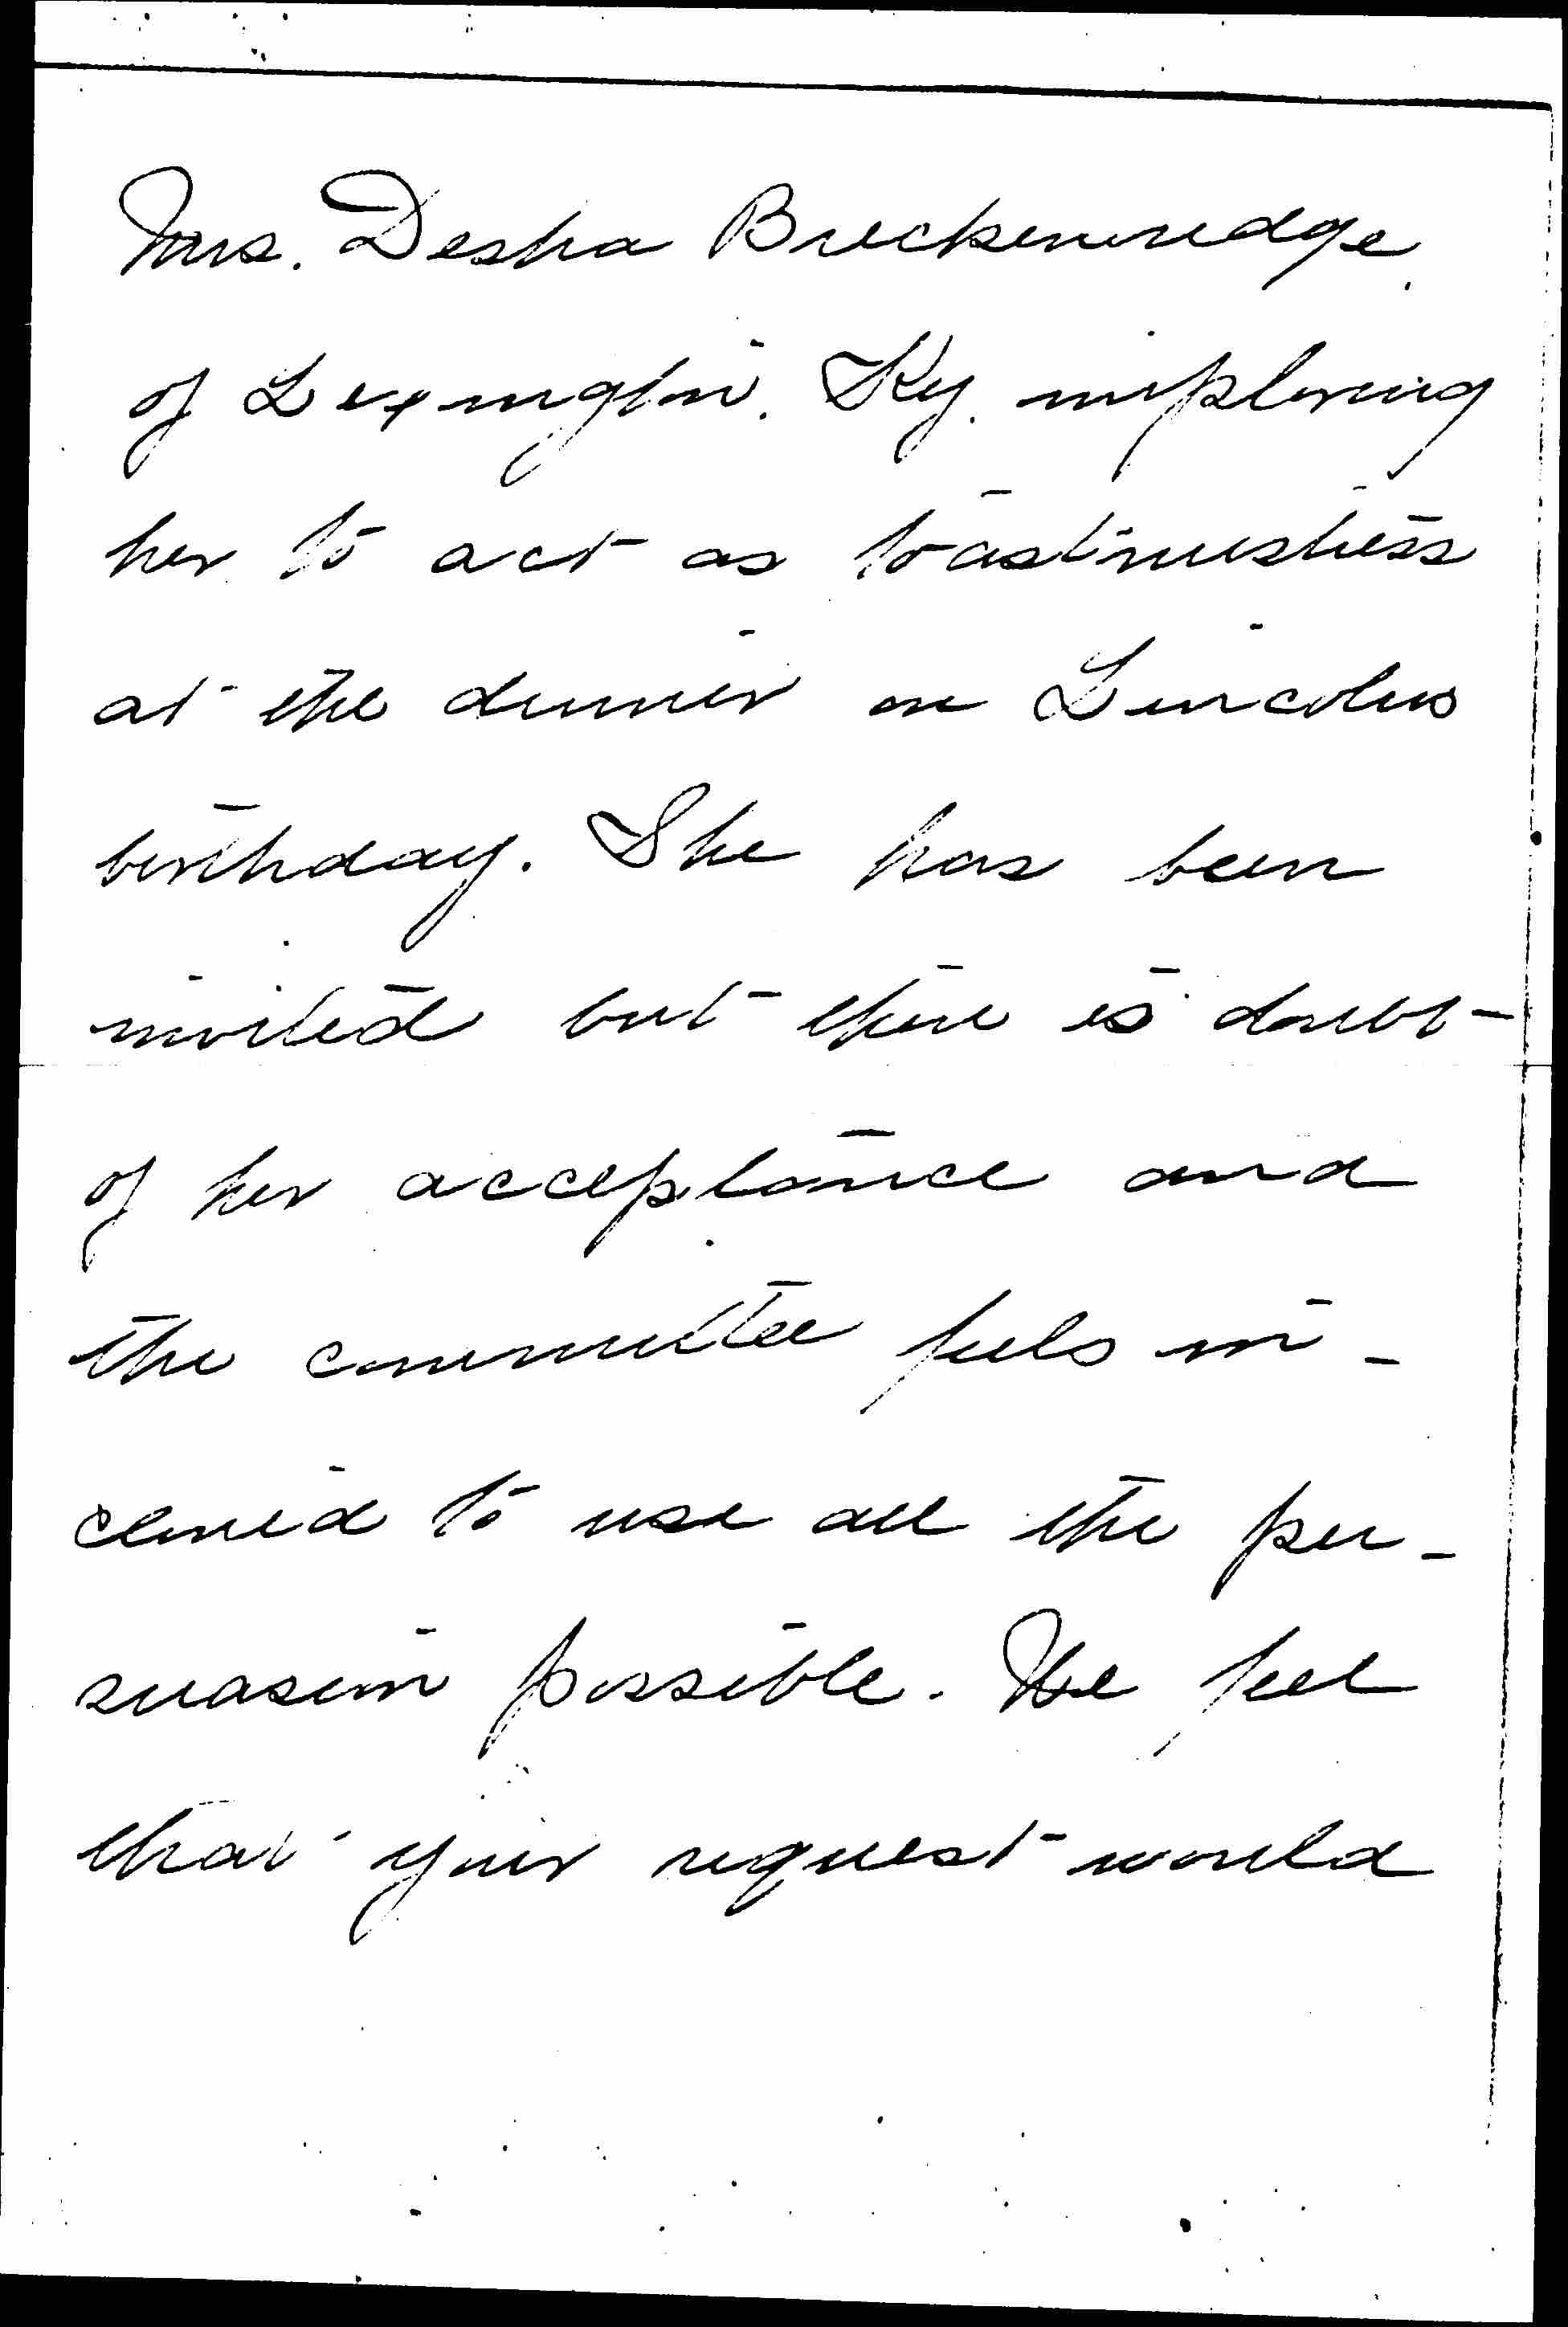 Mrs. Desha Breckenridge.
of Lexington. Ky. imploring
her to act as toastmistress
at the dinner on Lincolns
birthday. She has been
invited but there is doubt
of her acceptance and
the committee feels in-
clined to use all the per-
suasion possible. We feel
that your request would